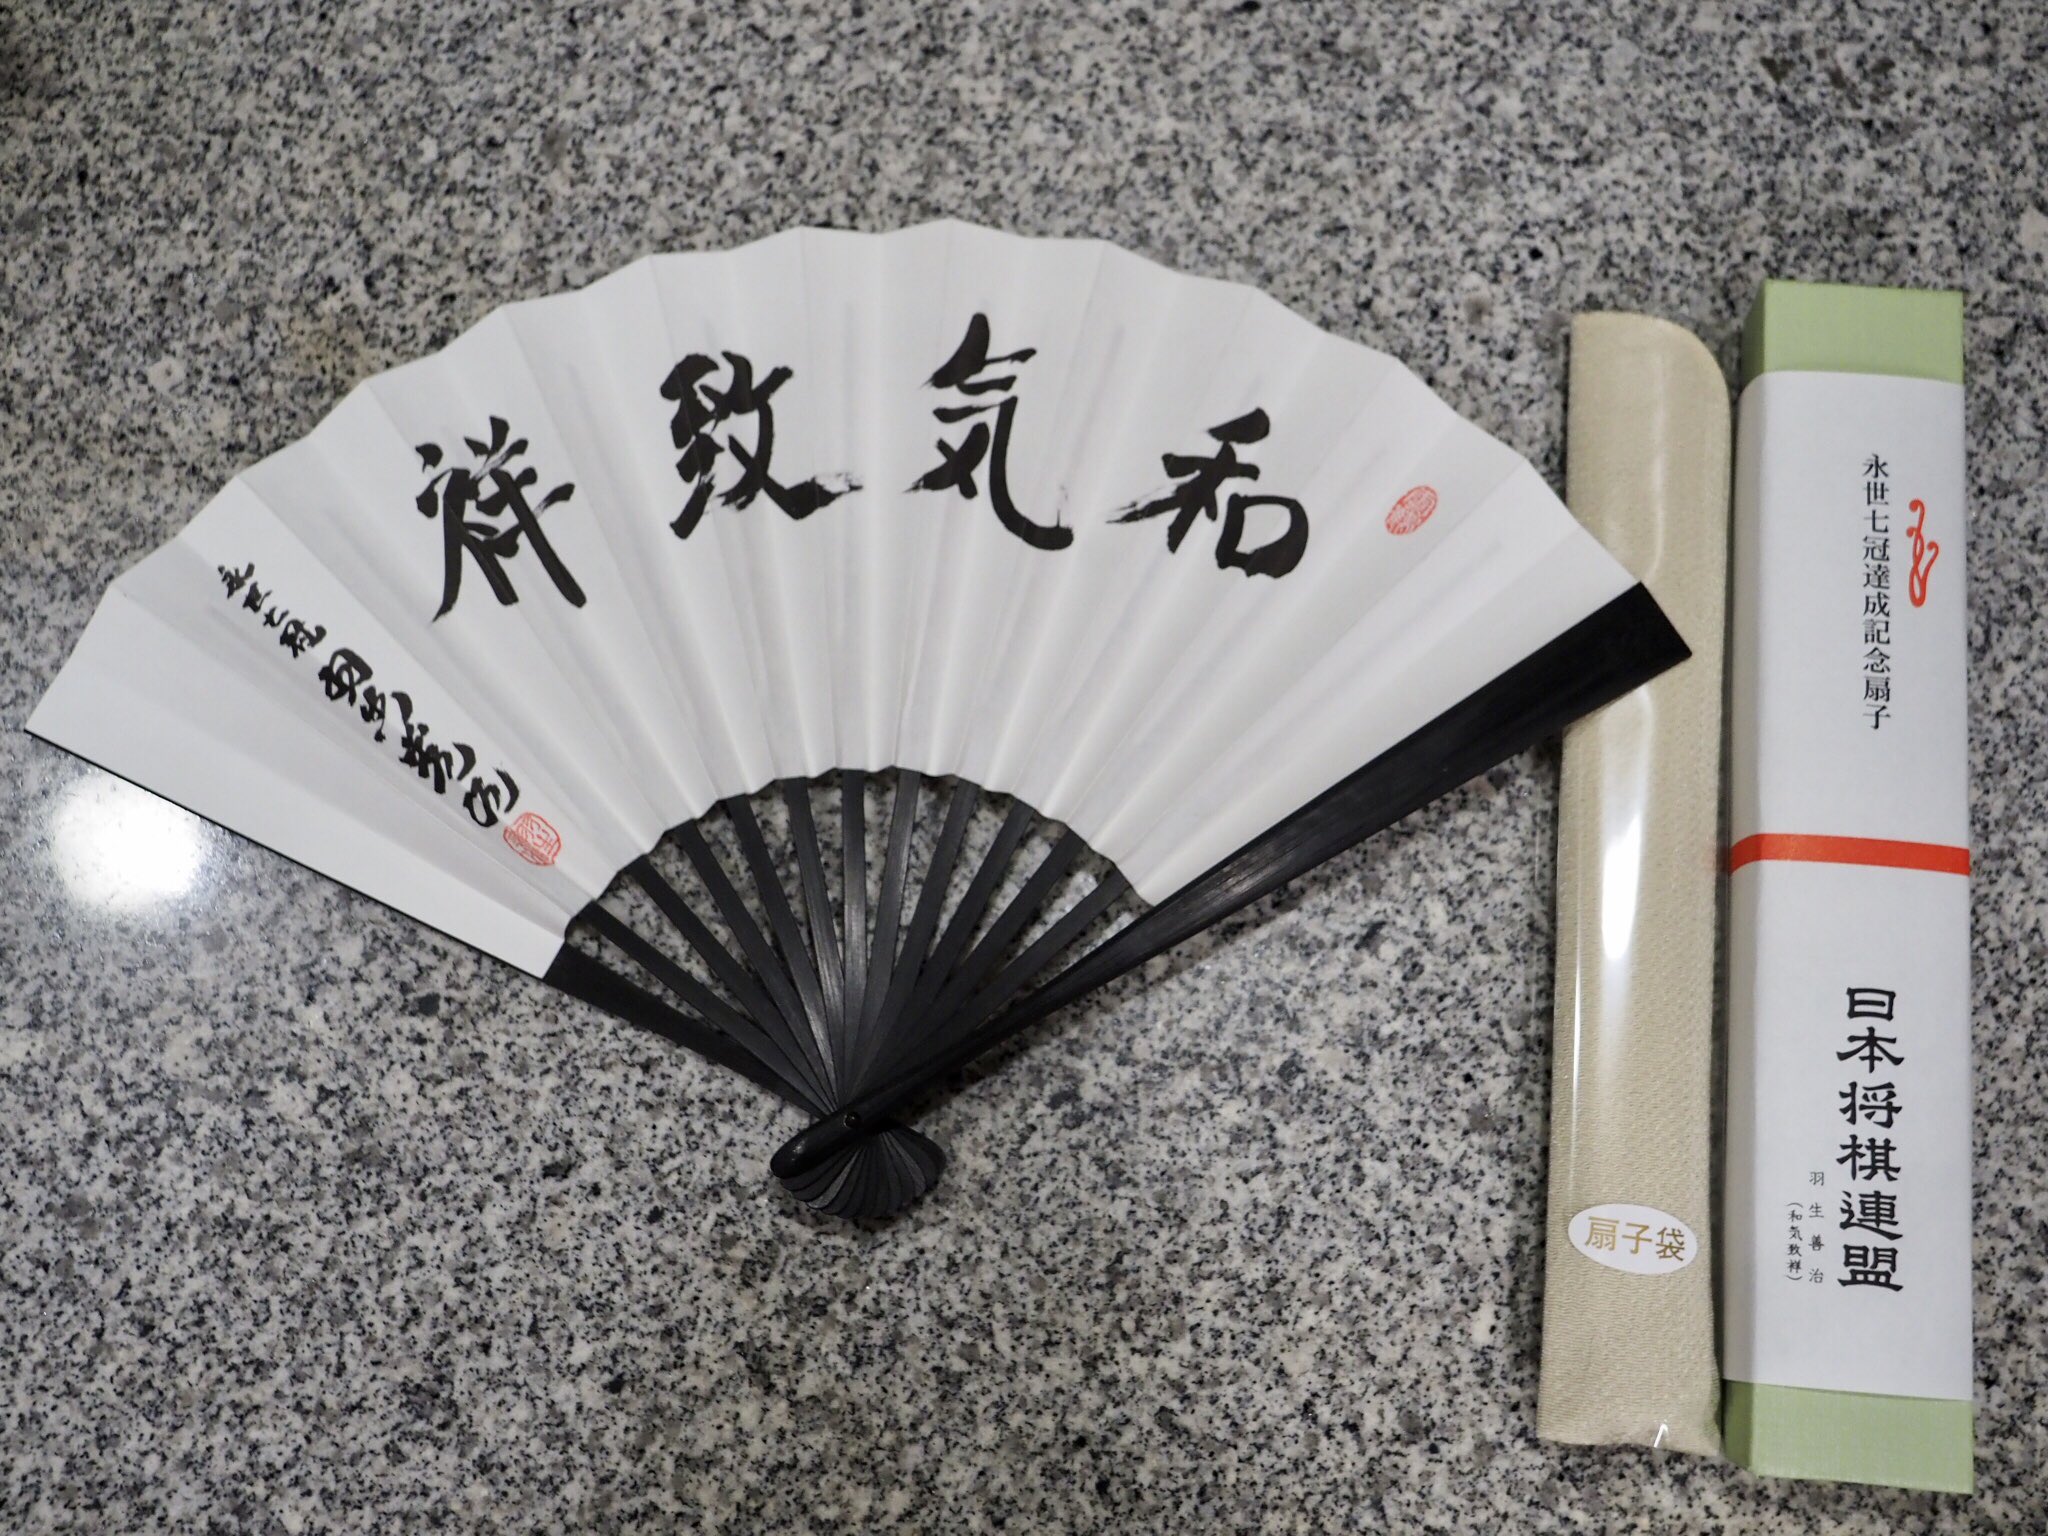 和気致祥
永世七冠 羽生善治
扇子袋
永世七冠達成記念扇子
日本将棋連盟
羽生善治
(和気致祥)